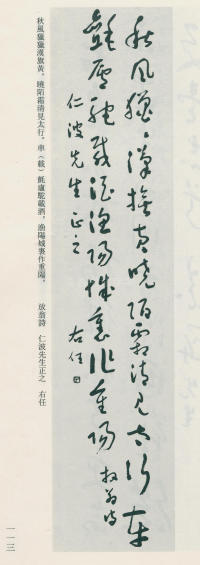 秋風獵〻漢旗黄曉陌霜清見太行車
氈廬駝載酒漁陽城裏作重陽 放翁詩
仁波先生正之 右任
秋風獵獵漢旗黄。曉陌霜清見太行。車(載)氈廬駝載酒,漁陽城裏作重陽。 放翁詩 仁波先生正之 右任
一一三